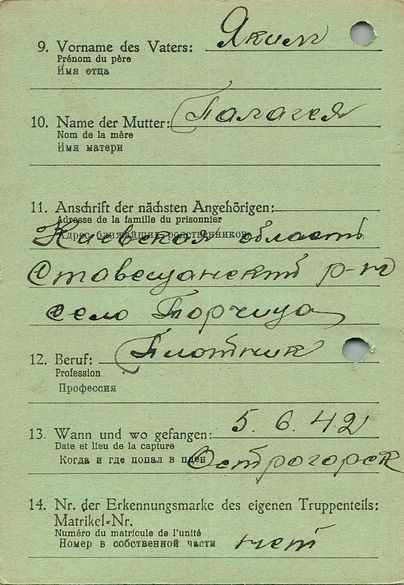 9. Vorname des Vaters: Яким
Prénom du père
Имя отца
10. Name der Mutter: Палагея
Nom de la mère
Имя матери
11. Anschrift der nächsten Angehörigen:
Adresse de la famille du prisonnier
Адрес ближайших родственников
Киевская область
Ставещанский р-н
село Торчица
12. Beruf: Плотник
Profession
Профессия
13. Wann und wo gefangen: 5. 6. 42
Date et lieu de la capture
Когда и где попал в плен Острогорск
14. Nr. der Erkennungsmarke des eigenen Truppenteils:
Matrikel-Nr.
Numéro du matricule de l'unité
Номер в собственной части нет